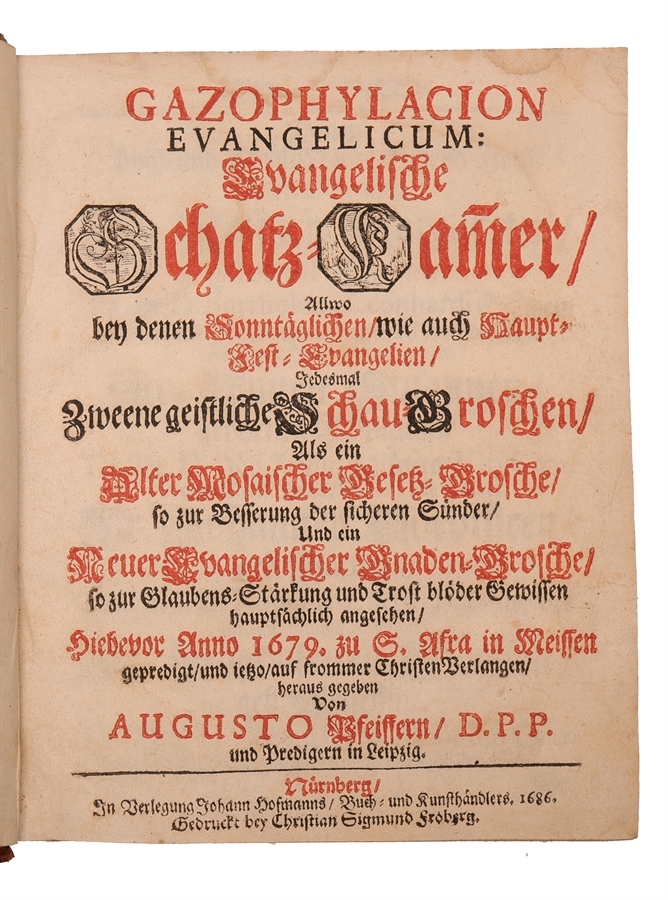 GAZOPHYLACION
EVANGELICUM:
Evangelische
Schatz-Cam̃er/
Allwo
bey denen Sonntäglichen/wie auch Haupt-
Fest-Evangelien/
Jedesmal
Zweene geistliche Schau-Groschen/
Als ein
Alter Mosaischer Gesetz-Grosche/
so zur Besserung der sicheren Sünder/
Und ein
Neuer Evangelischer Gnaden-Grosche/
so zur Glaubens-Stärkung und Trost blöder Gewissen
hauptsächlich angesehen/
Hiebevor Anno 1679. zu S. Afra in Meissen
gepredigt/und ietzo/auf frommer Christen Verlangen/
heraus gegeben
Von
AUGUSTO Pfeiffern/ D. P. P.
und Predigern in Leipzig.
Nürnberg/
In Verlegung Johann Hofmanns/ Buch- und Kunsthändlers. 1686.
Gedruckt bey Christian Sigmund Froberg.